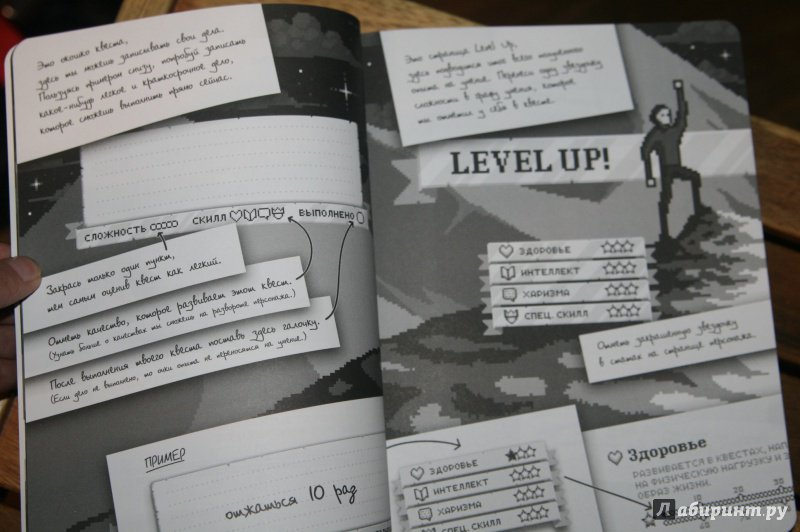 Это окошко квеста,
здесь ты можешь записывать свои дела.
Пользуясь примером снизу, попробуй записать
какое-нибудь легкое и краткосрочное дело,
которое сможешь выполнить прямо сейчас.
СЛОЖНОСТЬ
СКИЛЛ
ВЫПОЛНЕНО
Закрась только один пункт,
тем самым оценив квест как легкий.
Отметь качество, которое развивает этот квест.
(Узнать больше о качествах ты сможешь на развороте персонажа.)
После выполнения твоего квеста поставь здесь галочку.
(Если дело не выполнено, то очки опыта не переносятся на умение.)
ПРИМЕР
отжаться 10 раз
Это страница Level Up,
здесь подводится итог всего полученного
опыта на умение. Перенеси одну звездочку
сложности в графу умения, которое
ты отметил у себя в квесте.
LEVEL UP!
ЗДОРОВЬЕ
ИНТЕЛЛЕКТ
ХАРИЗМА
СПЕЦ. СКИЛЛ
Отметь закрашенную звездочку
в статах на странице персонажа.
ЗДОРОВЬЕ
ИНТЕЛЛЕКТ
ХАРИЗМА
СПЕЦ. СКИЛЛ
Здоровье
РАЗВИВАЕТСЯ В КВЕСТАХ,
НА ФИЗИЧЕСКУЮ НАГРУЗКУ И
ОБРАЗ ЖИЗНИ.
10 20 30
Лабиринт.ру